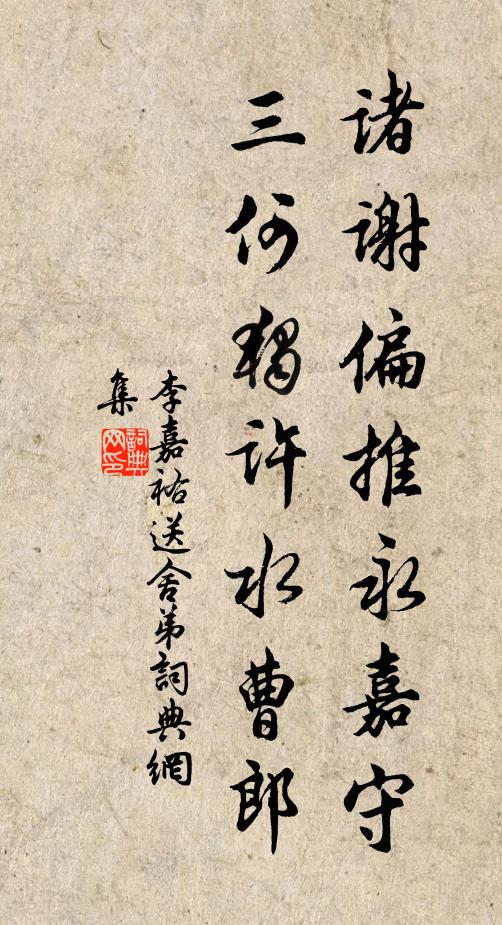 诸谢偏推永嘉守
三何独许水曹郎
李嘉祐送舍弟詞典網
集
詞典
网印